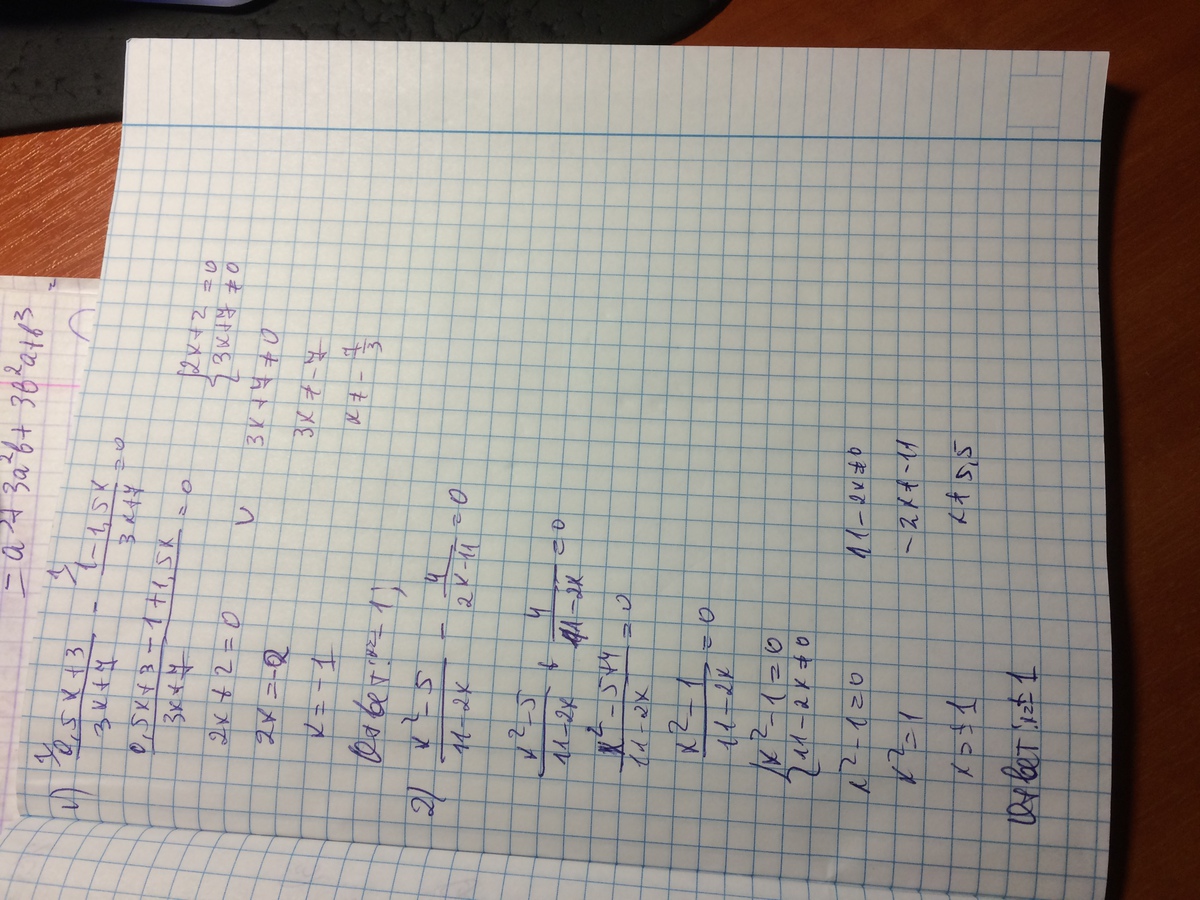 = a³ + 3a²b + 3b²a + b³ =
1) (0,5x+3)/(3x+7) - (1-1,5x)/(3x+7) = 0
(0,5x+3-1+1,5x)/(3x+7) = 0
{2x+2=0
{3x+7≠0
2x+2=0 ∨ 3x+7≠0
2x=-2 3x≠-7
x=-1 x≠-7/3
Ответ: -1;
2) (x²-5)/(11-2x) - 4/(2x-11) = 0
(x²-5)/(11-2x) + 4/(11-2x) = 0
(x²-5+4)/(11-2x) = 0
(x²-1)/(11-2x) = 0
{x²-1=0
{11-2x≠0
x²-1=0 11-2x≠0
x²=1 -2x≠-11
x=±1 x≠5,5
Ответ: ±1